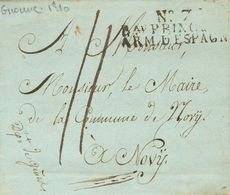 Gironne 1810
Nº 7
BAU PRINC
ARM. D'ESPAGN
A Monsieur,
Monsieur le Maire
de la Commune de Novy
à Novy